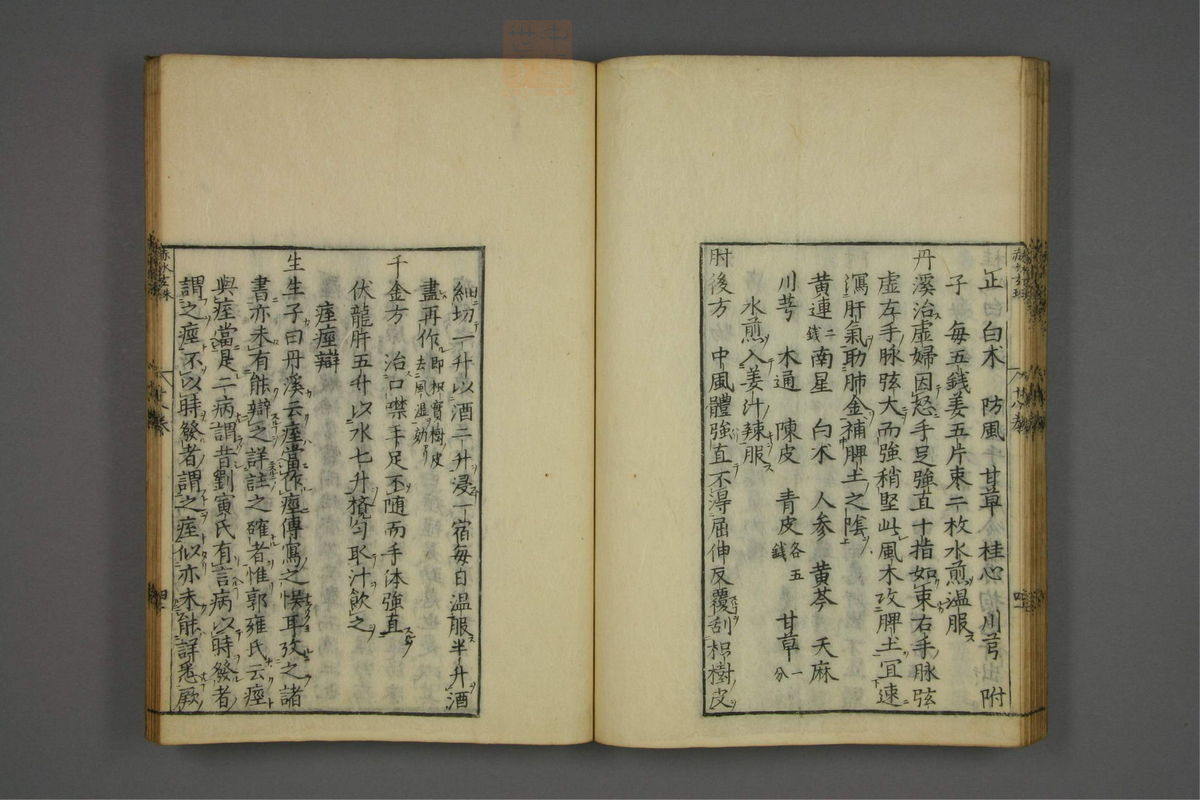 正 白朮 防風 甘草 桂心 川芎 附
子 每五錢姜五片棗二枚水煎溫服
丹溪治虛婦因怒手足強直十指如束右手脉弦
虛左手脉弦大而強稍堅此風木攻脾土宜速
瀉肝氣助肺金補脾土之陰
黃連二錢 南星 白朮 人參 黃芩 天麻
川芎 木通 陳皮 青皮各五錢 甘草一分
水煎入姜汁辣服
肘後方 中風體強直不得屈伸反覆刮枳樹皮
細切一升以酒二升浸一宿每日溫服半升酒
盡再作 即枳實樹皮去風濕効
千金方 治口噤手足不随而手体強直
伏龍肝五升以水七升攪勻取汁飲之
痓痙辯
生生子曰丹溪云痓當作痙傳寫之悞耳攷之諸
書亦未有能辯之詳註之確者惟郭雍氏云痙
與痓當是二病謂昔劉寅氏有言病以時發者
謂之痙不以時發者謂之痓似亦未能詳悉厥